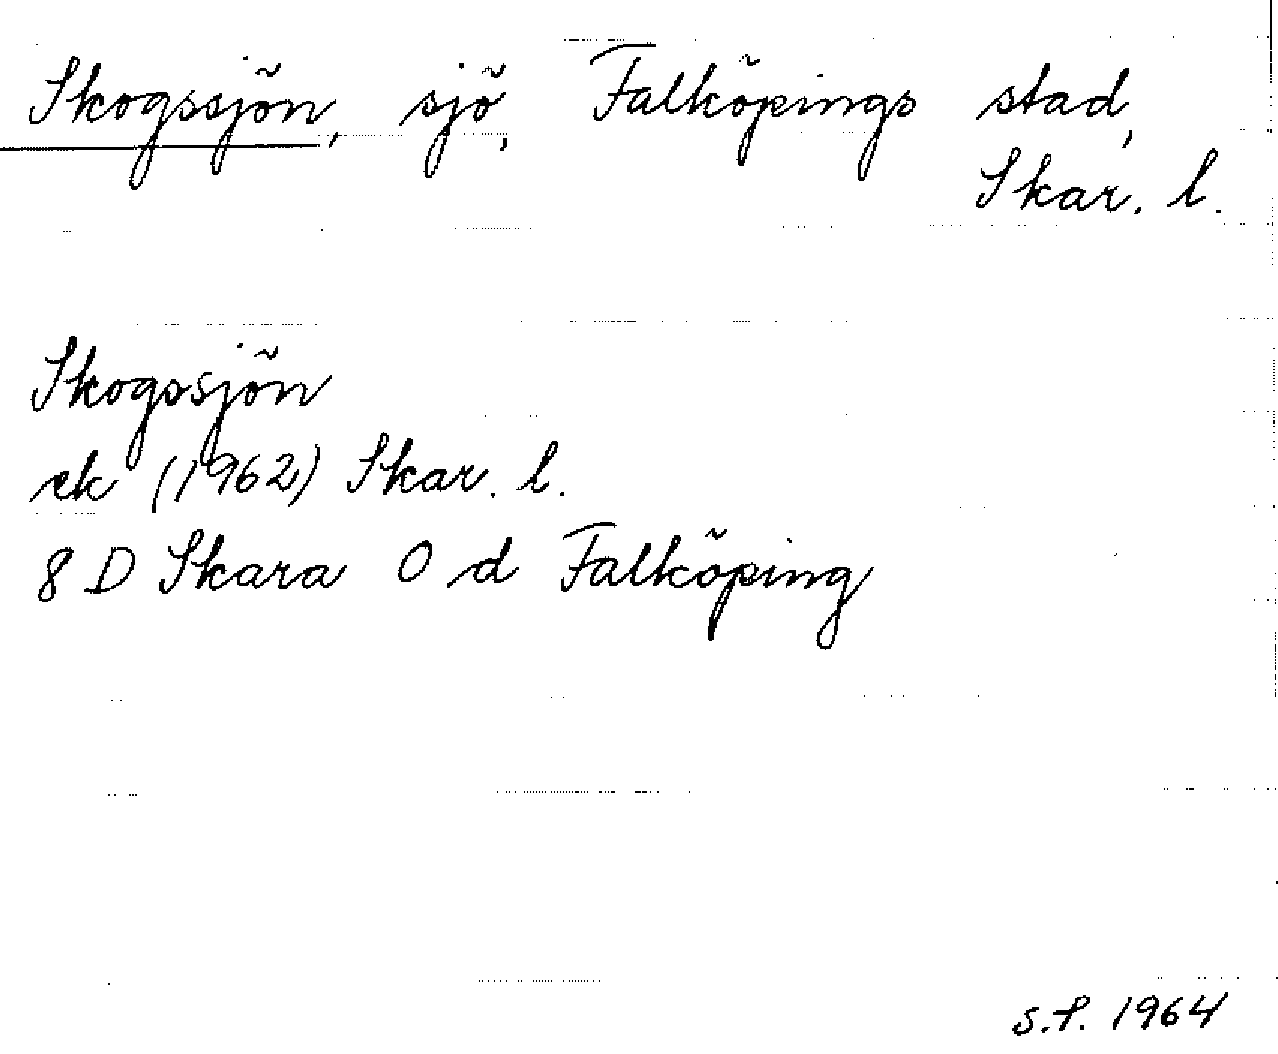 Skogssjön, sjö, Falköpings stad,
Skar. l.
Skogssjön
ek (1962) Skar. l.
8 D Skara O d Falköping
S.P. 1964